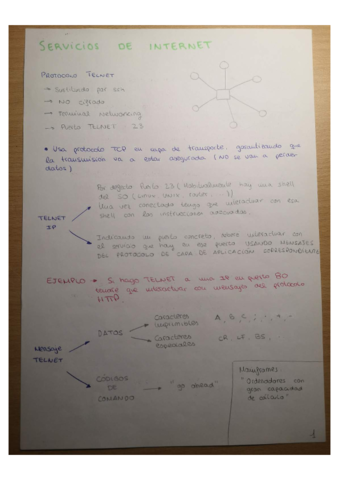 SERVICIOS DE INTERNET
PROTOCOLO TELNET
→ Sustituido por SSH
→ NO cifrado
→ Terminal networking
→ Puerto TELNET : 23
• Usa protocolo TCP en capa de transporte, garantizando que
la transmisión va a estar asegurada (NO se van a perder
datos)
TELNET
IP
Por defecto Puerto 23 (Habitualmente hay una shell
del SO
Una vez conectado tengo que interactuar con esa
shell con las instrucciones adecuadas.
Indicando un puerto concreto, debo interactuar con
el servicio que hay en ese puerto USANDO MENSAJES
DEL PROTOCOLO DE CAPA DE APLICACIÓN CORRESPONDIENTE
EJEMPLO • Si hago TELNET a una IP en puerto 80
tendré que interactuar con mensajes del protocolo
HTTP
Mensaje
TELNET
DATOS
Caracteres
imprimibles
A, B, C,
Caracteres
especiales
CR, LF, BS,
CÓDIGOS
DE
COMANDO
"go ahead"
Mainframes:
"Ordenadores con
gran capacidad
de cálculo"
1